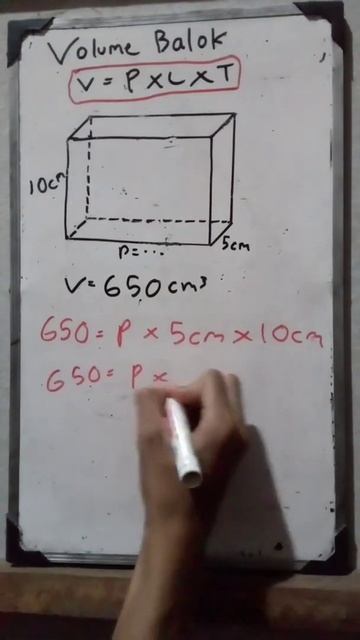 Volume Balok
V = P x L x T
10cm
5cm
P=...
V= 650cm³
650= P x 5cm x 10cm
650= P x